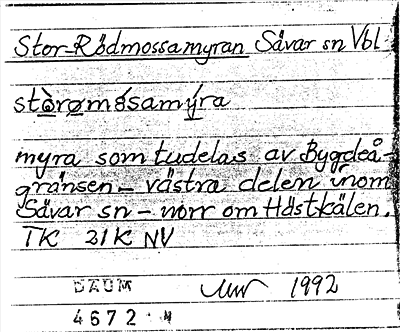 Stor-Rödmossamyran Sävar sn Vbl
myra som tudelas av Bygdeå-
gränsen - västra delen inom
Sävar sn - norr om Hästkälen.
TK 21K NV
DAUM 1992
4672